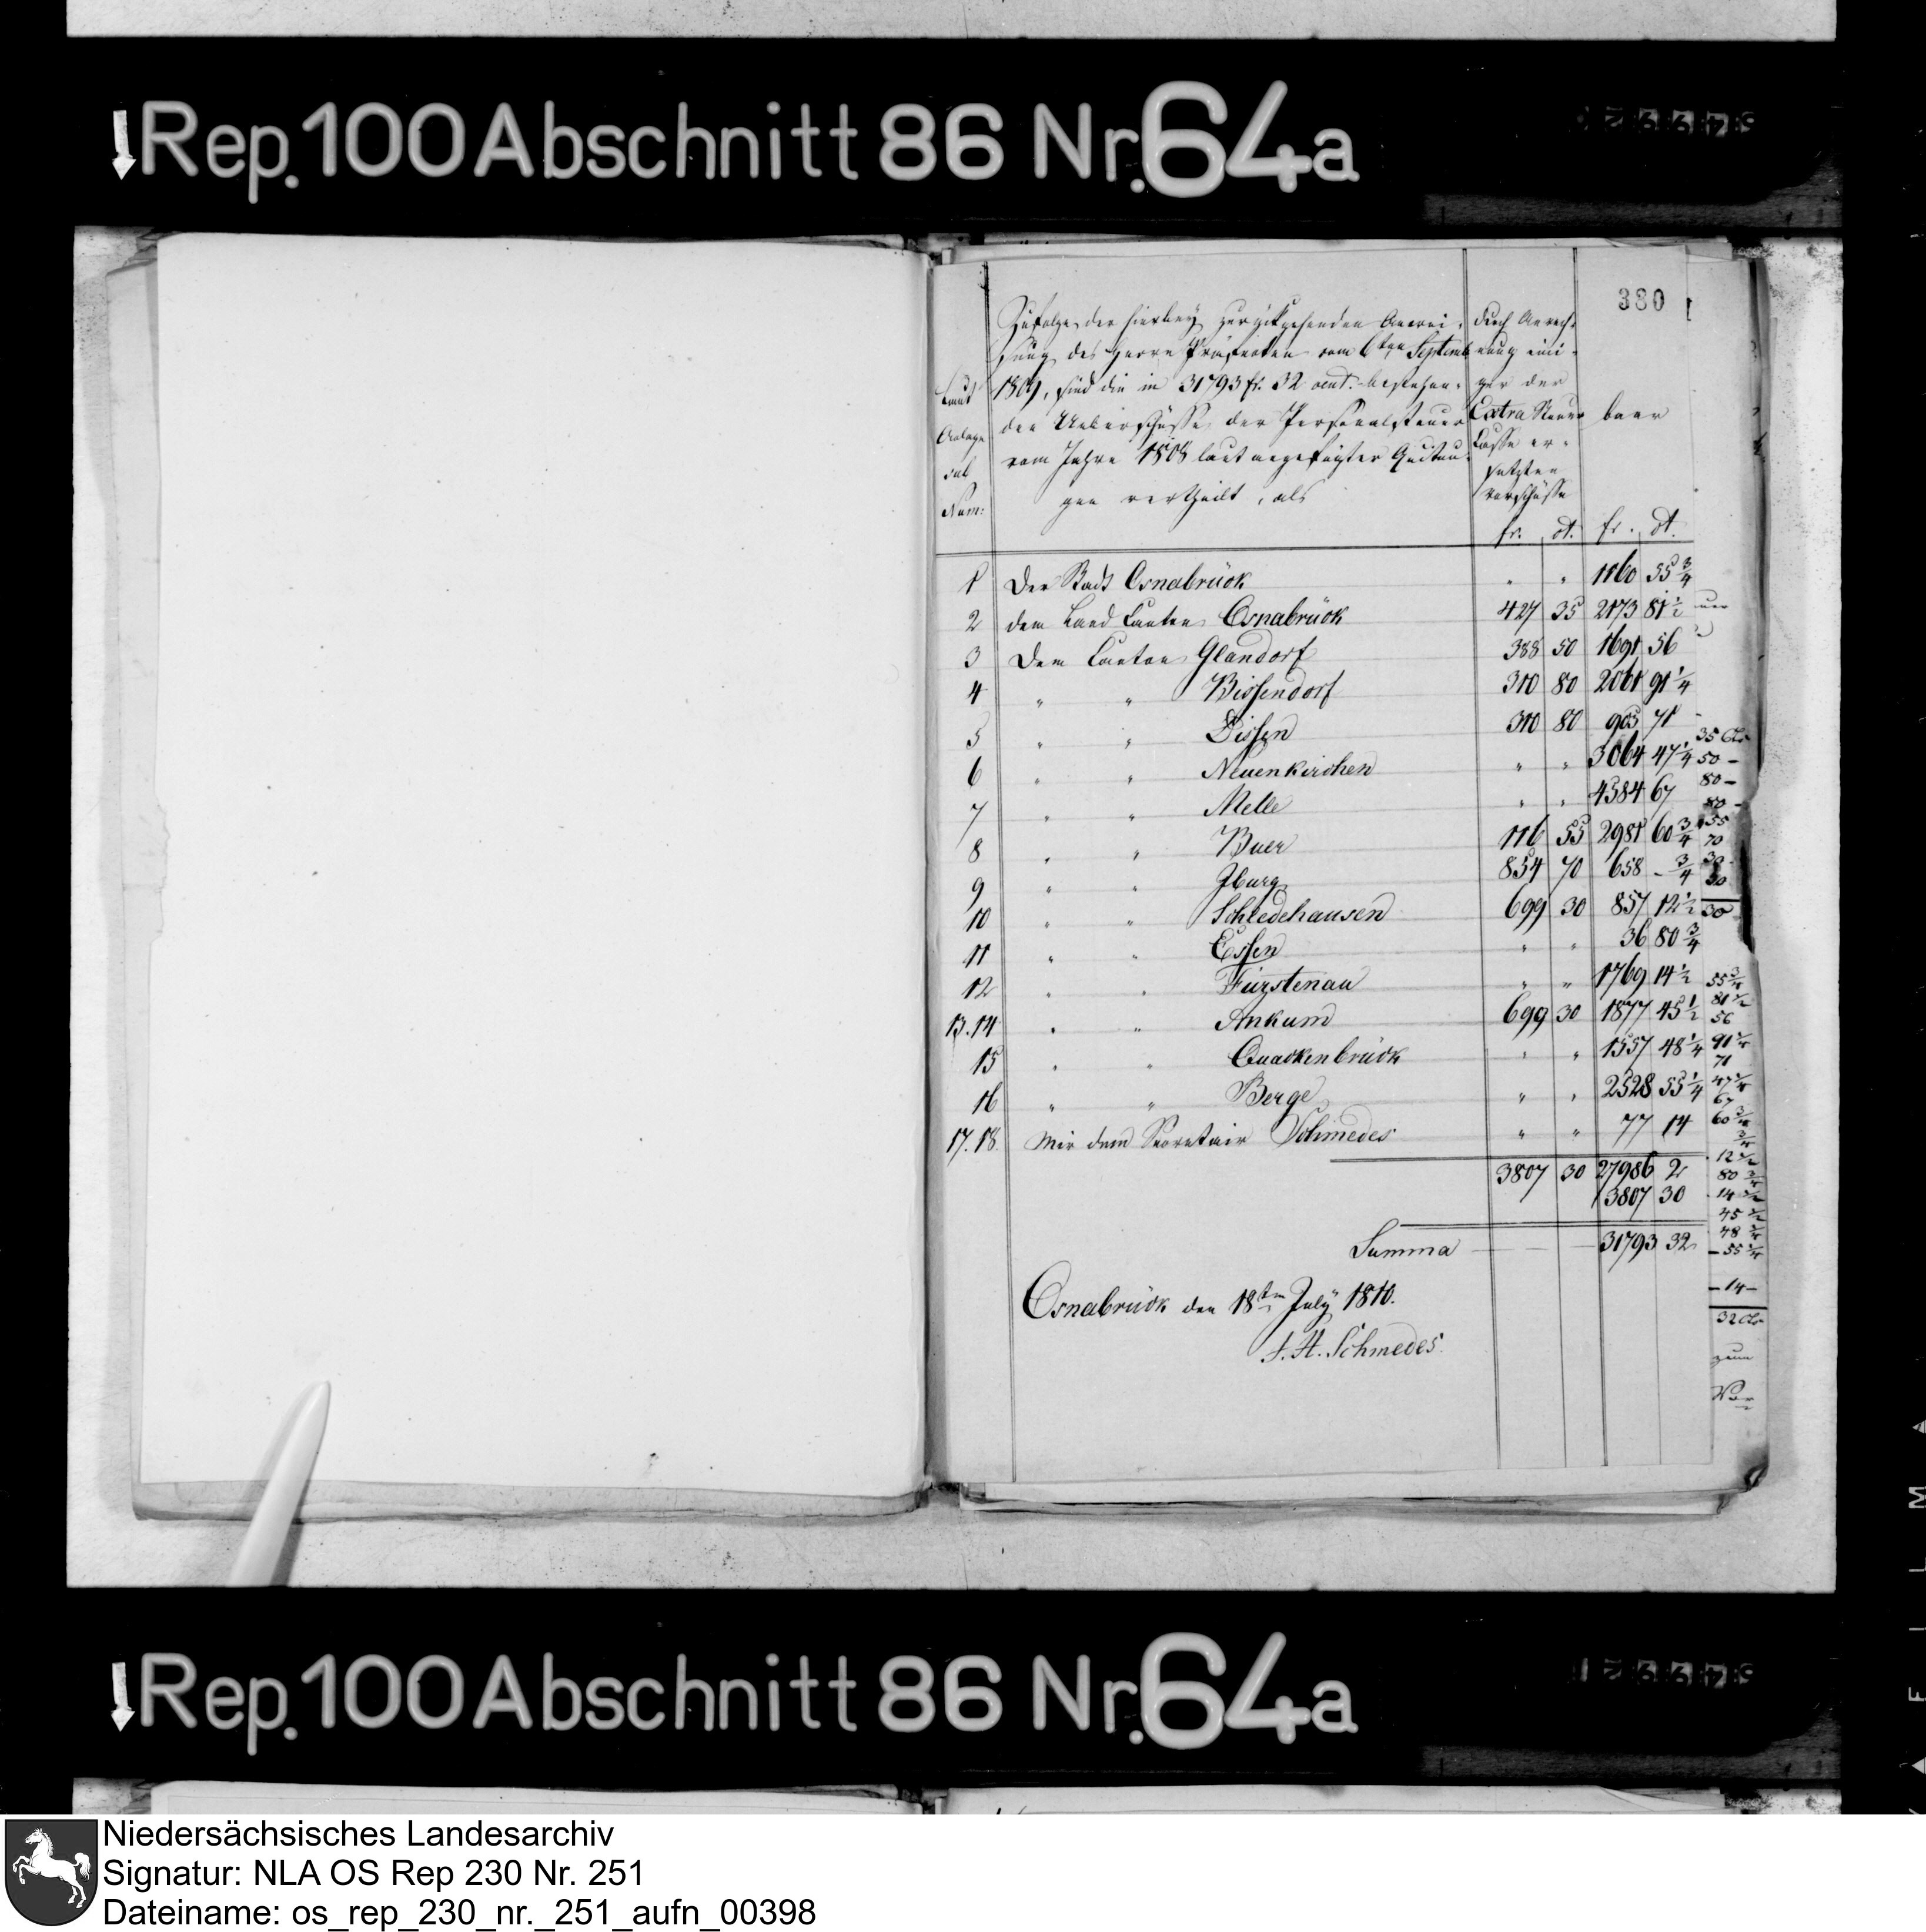 Rep. 100 Abschnitt 86 Nr. 64a
380
Zufolge der hierbey zurückgehenden Anwei-
sung des Herrn Präfecten vom 6ten Septemb
1809, sind die in 31793 fr. 32 cent. bestehen-
den Ueberschüsse der Personalsteuer
vom Jahre 1808 laut angefügter Quitun-
gen vertheilt, als
Laut
Anlage
sub
Num:
durch Anrech-
nung eini-
ger der
Extra Steuer
Casse er-
setzten
Vorschüsse
baar
fr. ct. fr. ct.
1 Der Stadt Osnabrück " " 1160 55 3/4
2 dem Land Canton Osnabrück 427 35 2173 81 1/2
3 Dem Canton Glandorf 388 50 1691 56
4 " " Bissendorf 310 80 2061 91 1/4
5 " " Dissen 310 80 905 71
6 " " Neuenkirchen " " 3064 47 1/4
7 " " Melle " " 4584 67
8 " " Buer 116 55 2981 60 3/4
9 " " Iburg 854 70 658 - 3/4
10 " " Schledehausen 699 30 857 12 1/2
11 " " Essen " " 36 80 3/4
12 " " Fürstenau " " 1769 14 1/2
13.14 " " Ankum 699 30 1877 45 1/2
15 " " Quackenbrück " " 1557 48 1/4
16 " " Berge " " 2528 55 1/4
17.18. Mir dem Secretair Schmedes " " 77 14
3807 30 27986 2
3807 30
Summa 31793 32
Osnabrück den 18ten July 1810.
F. H. Schmedes
50 -
80 -
80 -
55
70
30
30
30
55 3/4
81 1/2
56
91 1/4
71
47 1/4
67
60 3/4
3/4
12 1/2
80 3/4
14 1/2
45 1/2
48 1/4
- 55 1/4
- 14 -
Rep. 100 Abschnitt 86 Nr. 64a
Niedersächsisches Landesarchiv
Signatur: NLA OS Rep 230 Nr. 251
Dateiname: os_rep_230_nr._251_aufn_00398